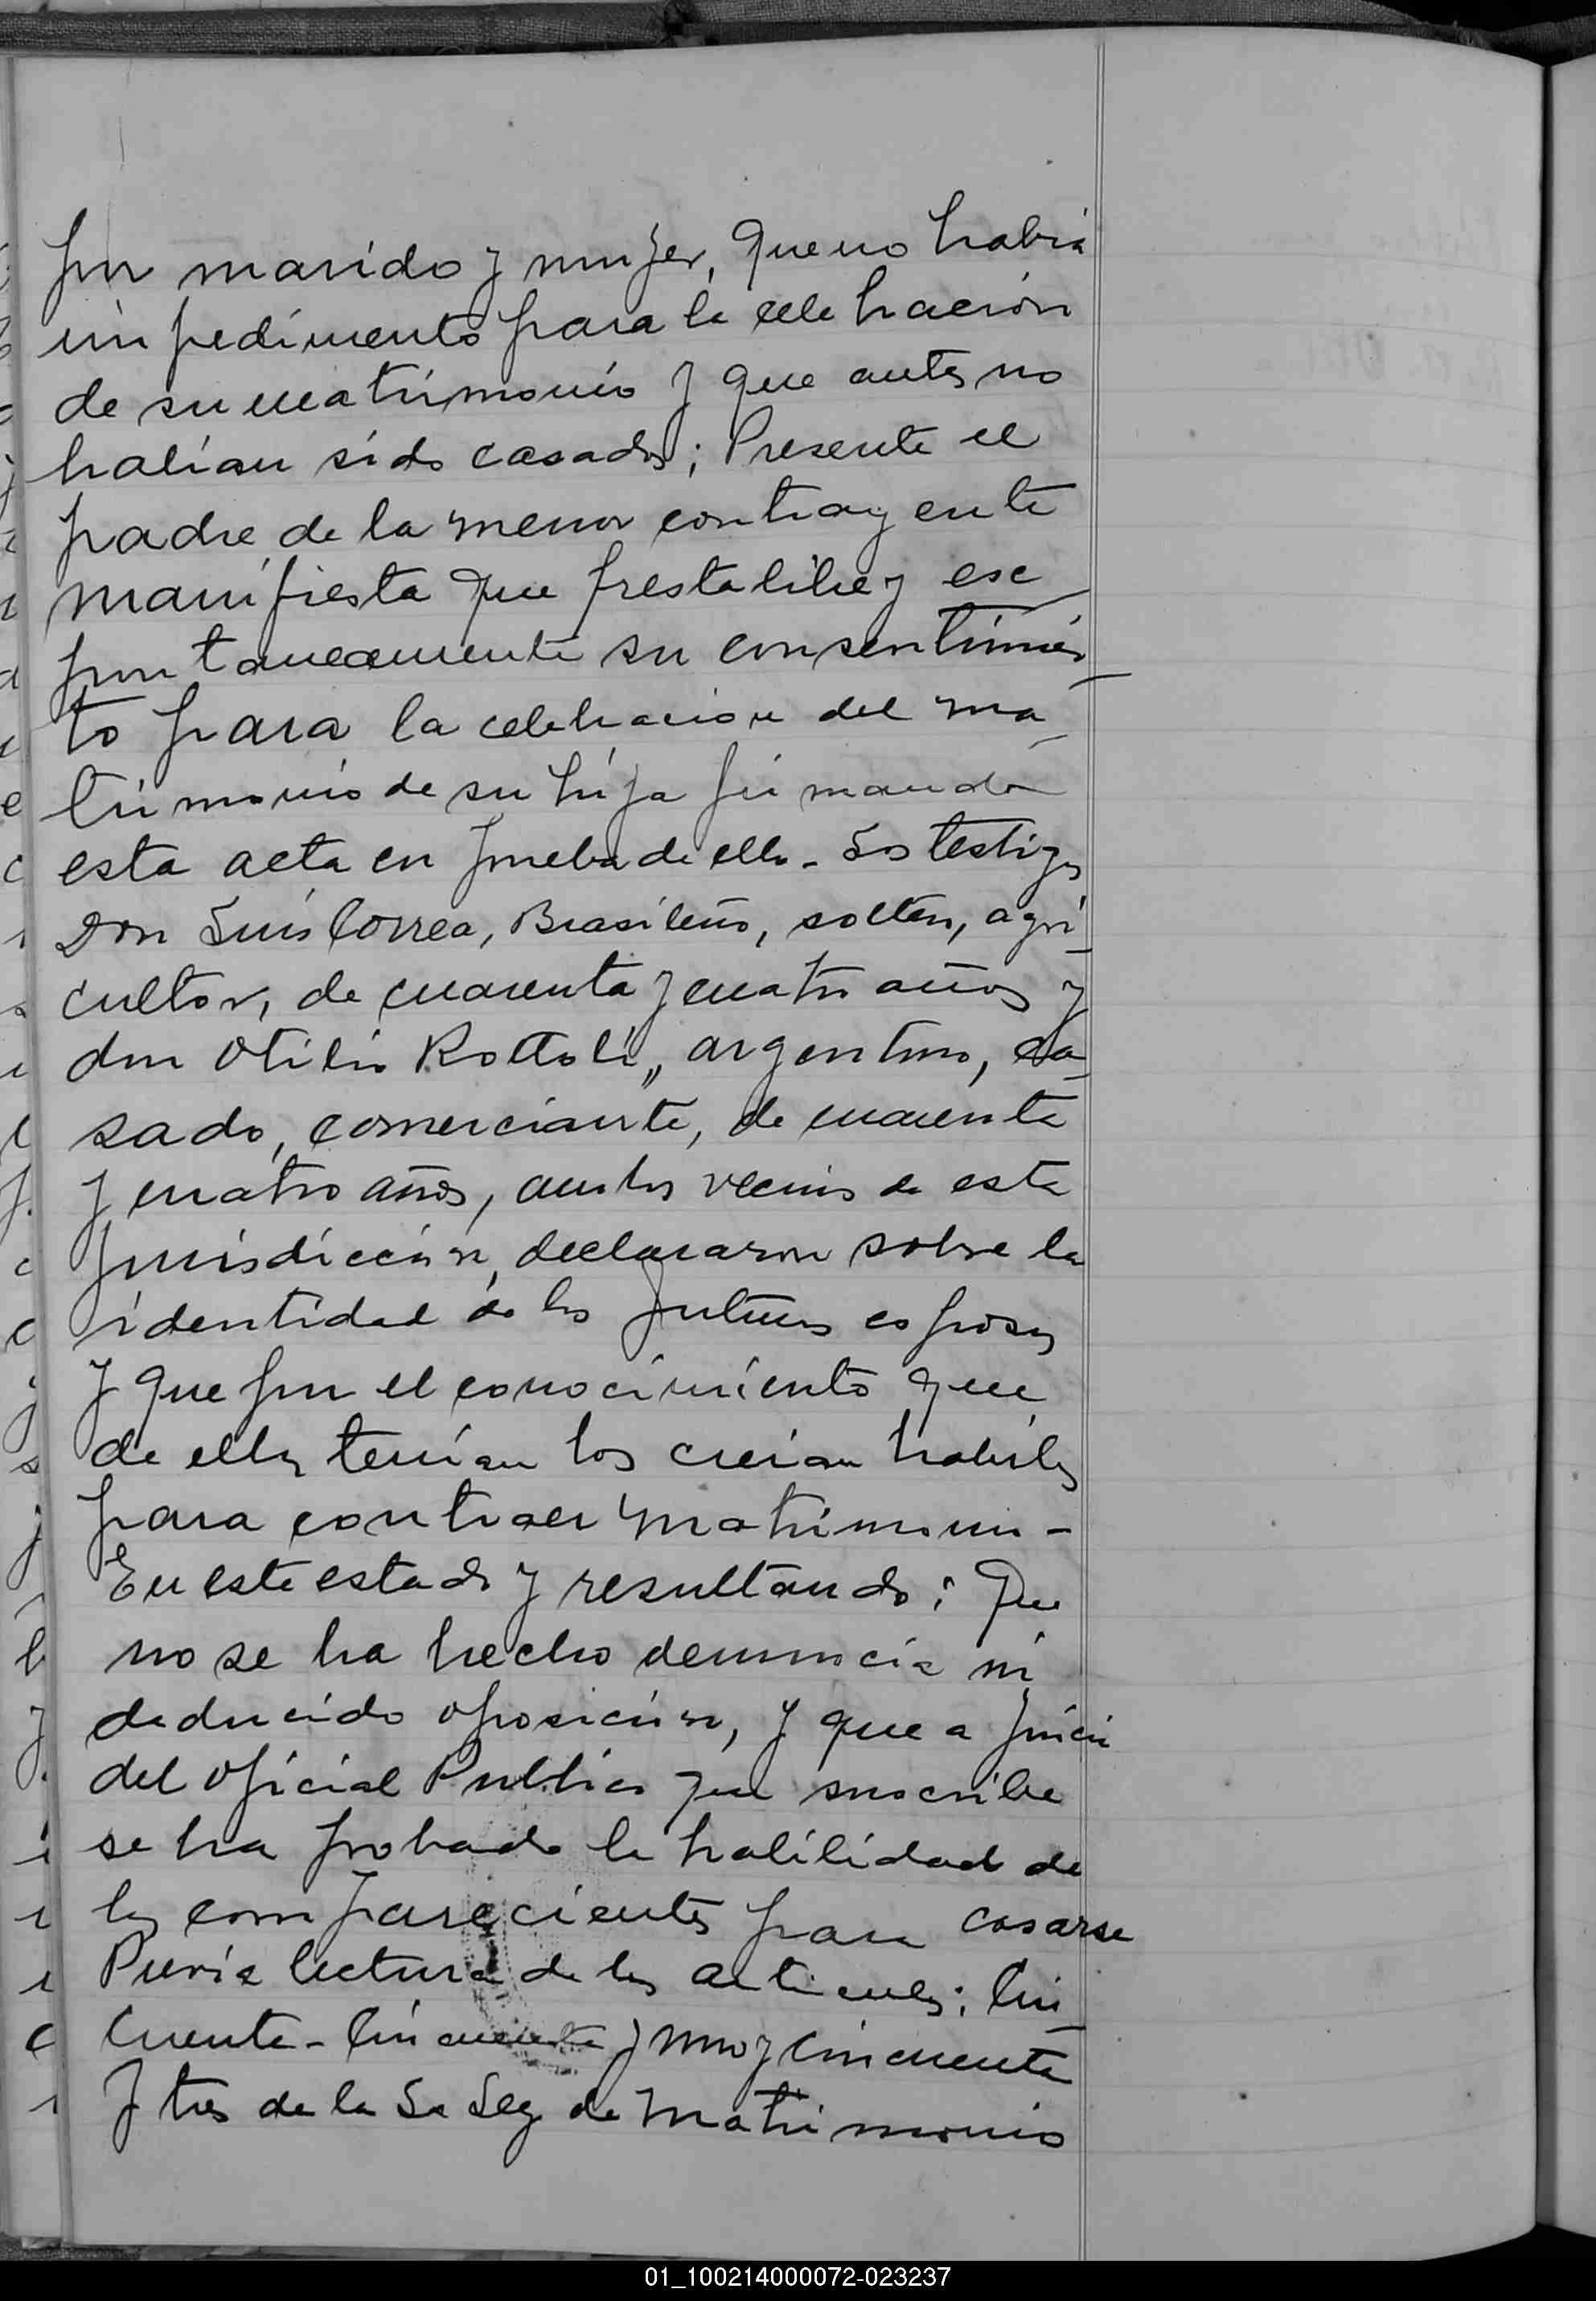 por marido y mujer, que no había
impedimento para la celebración
de su matrimonio y que antes no
habían sido casados; Presente el
padre de la menor contrayente
manifiesta que presta libre y es-
pontaneamente su consentimien-
to para la celebracion del ma-
trimonio de su hija firmando
esta acta en prueba de ello - Los testigos
Don Luis Correa, Brasileño, soltero, agri-
cultor, de cuarenta y cuatro años y
don Otilio Rottoli, argentino, ca-
sado, comerciante, de cuarenta
y cuatro años, ambos vecinos de esta
Jurisdicción, declararon sobre la
identidad de los futuros esposos
y que por el conocimiento que
de ellos tenían los creían habiles
para contraer matrimonio -
En este estado y resultando: Que
no se ha hecho denuncia ni
deducido oposición, y que a juicio
del oficial Publico que suscribe
se ha probado la habilidad de
los comparecientes para casarse
Previa lectura de los articulos: Cin-
cuenta - Cincuenta y uno y Cincuenta
y tres de la Ley de Matrimonio
01_100214000072-023237